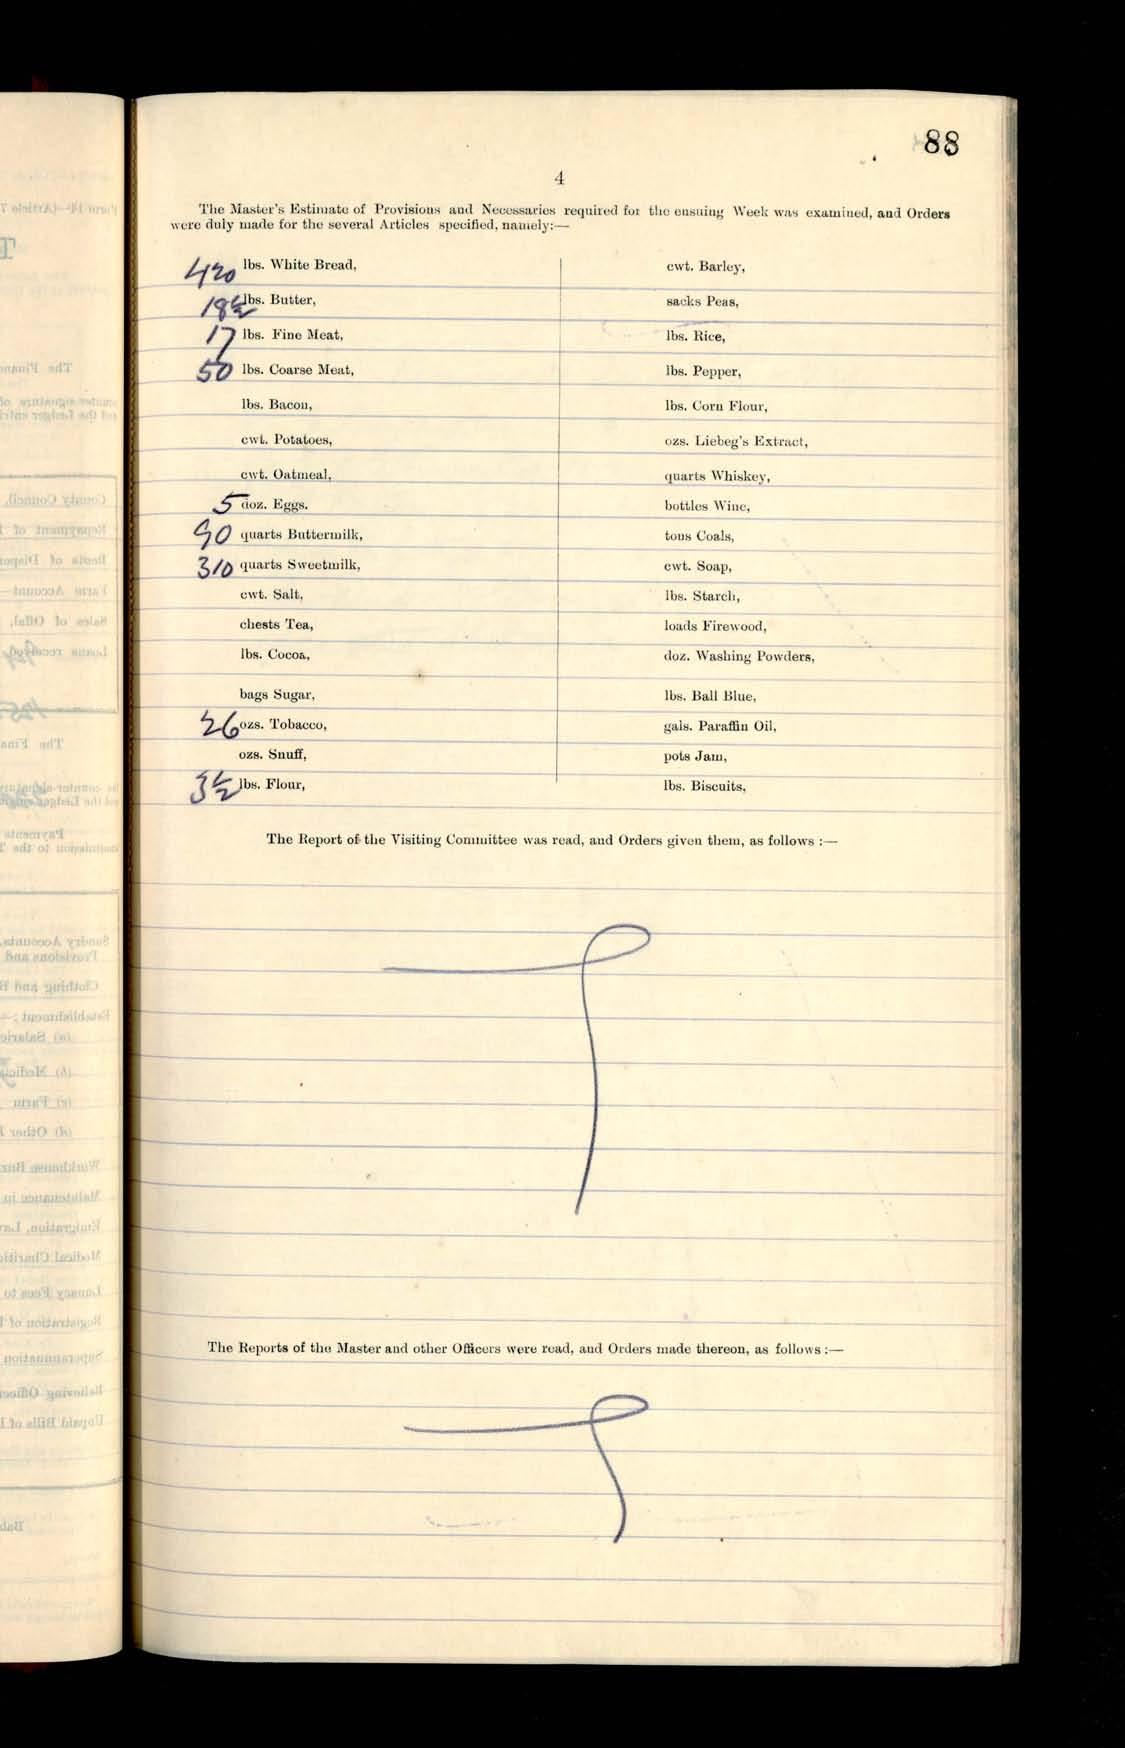 88
4
The Master's Estimate of Provisions and Necessaries required for the ensuing Week was examined, and Orders
were duly made for the several Articles specified, namely:—
420 lbs. White Bread,
18½ lbs. Butter,
17 lbs. Fine Meat,
50 lbs. Coarse Meat,
lbs. Bacon,
cwt. Potatoes,
cwt. Oatmeal,
5 doz. Eggs.
90 quarts Buttermilk,
310 quarts Sweetmilk,
cwt. Salt,
chests Tea,
lbs. Cocoa,
bags Sugar,
26 ozs. Tobacco,
ozs. Snuff,
3½ lbs. Flour,
cwt. Barley,
sacks Peas,
lbs. Rice,
lbs. Pepper,
lbs. Corn Flour,
ozs. Liebeg's Extract,
quarts Whiskey,
bottles Wine,
tons Coals,
cwt. Soap,
lbs. Starch,
loads Firewood,
doz. Washing Powders,
lbs. Ball Blue,
gals. Paraffin Oil,
pots Jam,
lbs. Biscuits,
The Report of the Visiting Committee was read, and Orders given them, as follows :—
The Reports of the Master and other Officers were read, and Orders made thereon, as follows :—